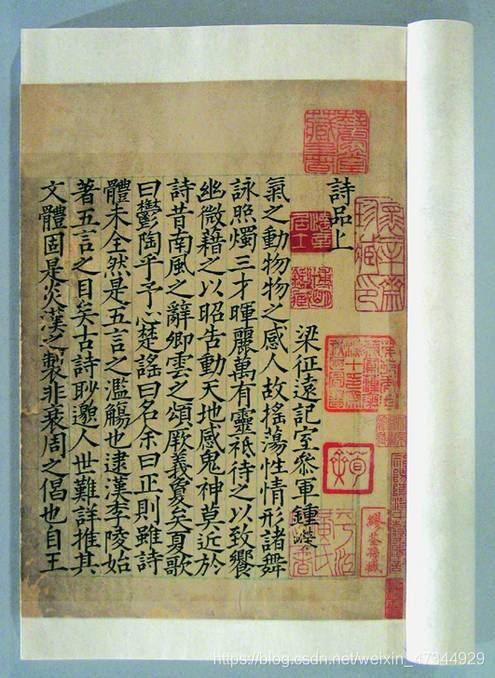 詩品上
梁征遠記室叅軍鍾嶸
氣之動物物之感人故搖蕩性情形諸舞
詠照燭三才暉麗萬有靈祇待之以致饗
幽微藉之以昭告動天地感鬼神莫近於
詩昔南風之辭卿雲之頌厥義敻矣夏歌
曰鬱陶乎予心楚謠曰名余曰正則雖詩
體未全然是五言之濫觴也逮漢李陵始
著五言之目矣古詩眇邈人世難詳推其
文體固是炎漢之製非衰周之倡也自王
繆荃孫藏
https://blog.csdn.net/weixin_47344929